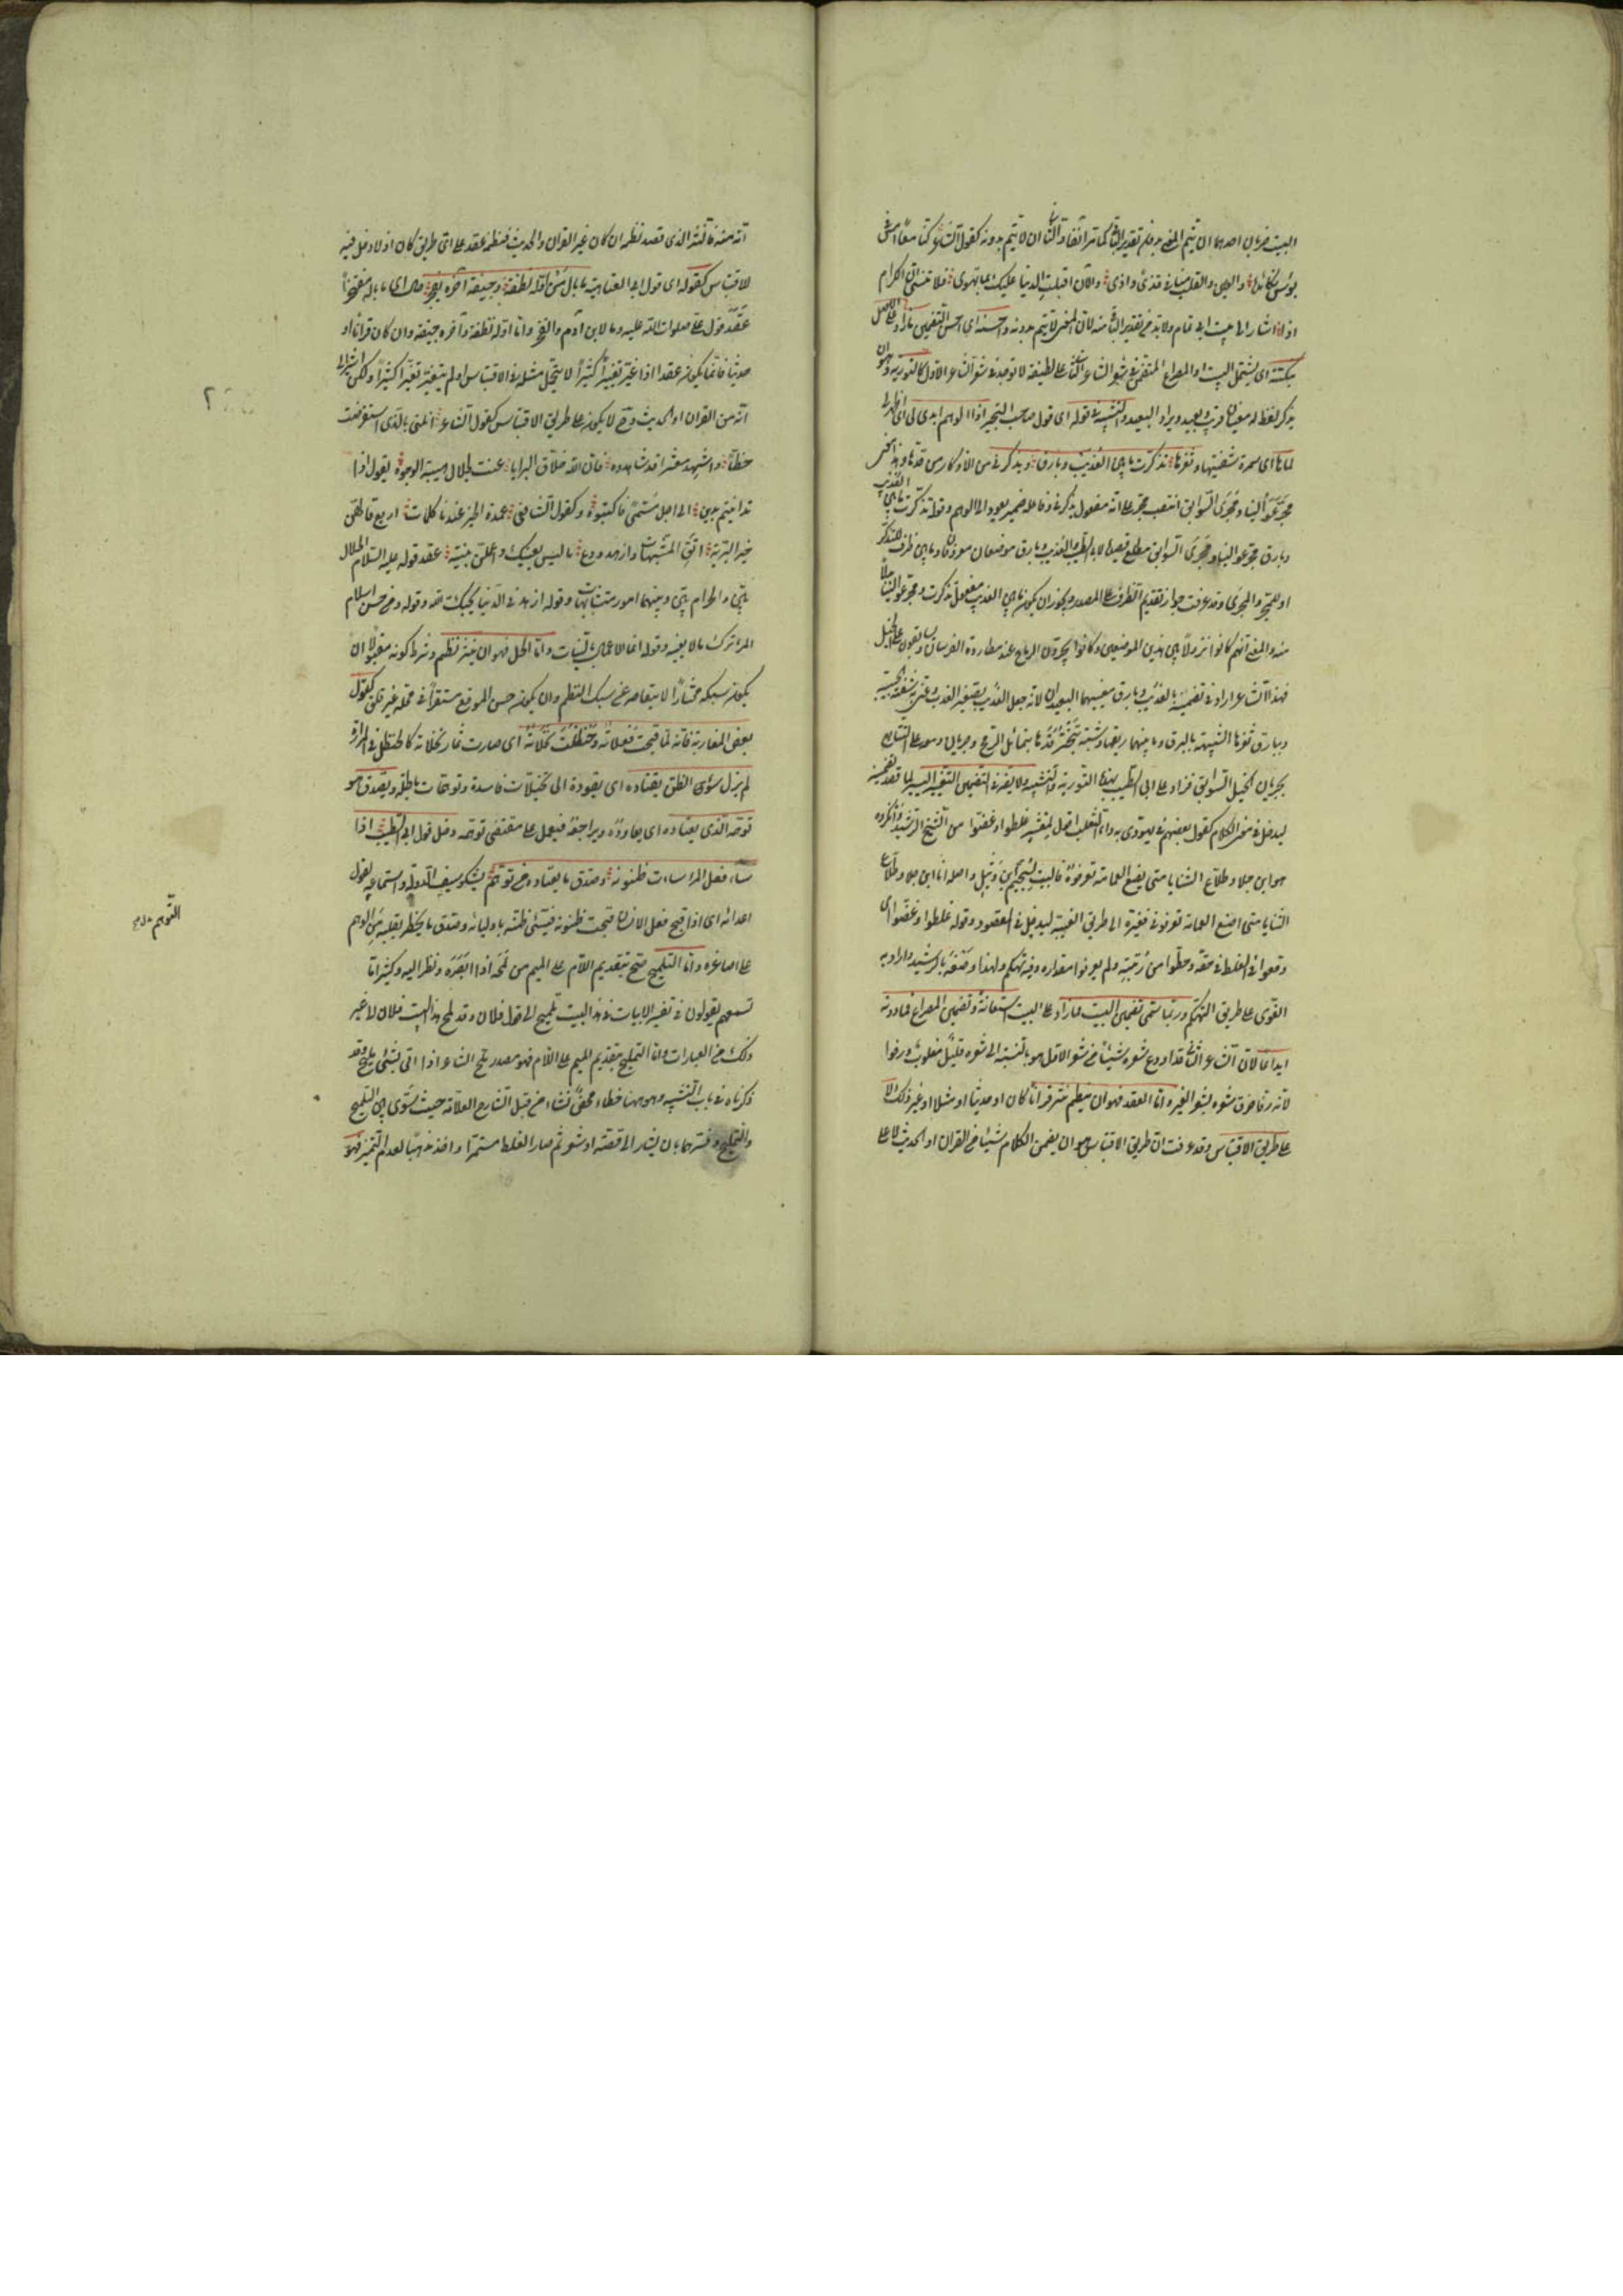 البيت ضربان احدهما ان يتم المعنى بدون تقدير الباقى كما مر آنفا والثانى ان لا يتم بدونه كقول الشاعر كنا معا امس فى
بؤس نكابده والعين والقلب منا فى قذى واذى والآن اقبلت الدنيا عليك بما تهوى فلا تنسنى ان الكرام
اذا اشار الى بيت ابى تمام ولا بد من تقدير الباقى منه لان المعنى لا يتم بدونه واحسنه اى احسن التضمين ما زاد على الاصل
بنكتة اى يشتمل البيت او المصراع المتضمن فى شعر الشاعر الثانى على لطيفة لا توجد فى شعر الشاعر الاول كالتورية وهو ان
يذكر لفظ له معنيان قريب وبعيد ويراد البعيد والتشبيه فى قوله اى قول صاحب التحبير اذا الوهم ابدى لى اى اظهر لى
لماها اى سمرة شفتيها وثغرها تذكرت ما بين العذيب وبارق ويذكرنى من الاذكار من قدها ومدامعى
مجر عوالينا ومجرى السوابق انتصب مجر على انه مفعول يذكرنى وفاعله ضمير يعود الى الوهم وقوله تذكرت ما بين العذيب
وبارق مجر عوالينا ومجرى السوابق مطلع قصيدة لابى الطيب والعذيب وبارق موضعان معروفان وما بين ظرف للتذكر
او للمجر والمجرى وقد عرفت جواز تقديم الظرف على المصدر ويجوز ان يكون ما بين العذيب مفعول تذكرت ومجر عوالينا بدلا
منه والمعنى انهم كانوا نزولا بين هذين الموضعين وكانوا يجرون الرماح عند مطاردة الفرسان ويسابقون على الخيل
فهذا الشاعر اراد فى تضمينه بالعذيب وبارق معنييهما البعيدين لانه جعل العذيب تصغير العذب وعنى به شفة الحبيبة
وببارق ثغرها الشبيه بالبرق وبما بينهما ريقها وشبه تبختر قدها بتمايل الرمح وجريان دموعه على التتابع
بجريان الخيل السوابق فزاد على ابى الطيب بهذه التورية والتشبيه ولا يضر فى التضمين التغيير اليسير لما قصد تضمينه
ليدخل فى معنى الكلام كقول بعضهم فى يهودى به داء الثعلب اقول لمعشر غلطوا وغضوا من الشيخ الرشيد وانكروه
هو ابن جلا وطلاع الثنايا متى يضع العمامة تعرفوه فالبيت لسحيم بن وثيل واصله انا ابن جلا وطلاع
الثنايا متى اضع العمامة تعرفونى فغيره الى طريق الغيبة ليدخل فى المقصود وقوله غلطوا وغضوا اى
وقعوا فى الغلط فى حقه وحطوا من رتبته ولم يعرفوا مقداره وفيه تهكم ولهذا وصفه بالرشيد واراد به
الغوى على طريق التهكم وربما سمى تضمين البيت فما زاد على البيت استعانة وتضمين المصراع فما دونه
ايداعا لان الشاعر الثانى قد اودع شعره شيئا من شعر الاول هو بالنسبة الى شعره قليل مغلوب ورفوا
لانه رفا خرق شعره بشعر الغير واما العقد فهو ان ينظم نثر قرآنا كان او حديثا او مثلا او غير ذلك لا
على طريق الاقتباس وقد عرفت ان طريق الاقتباس هو ان يضمن الكلام شيئا من القرآن او الحديث لا على
انه منه فالنثر الذى قصد نظمه ان كان غير القرآن والحديث فنظمه عقد على اى طريق كان اذ لا دخل فيه
للاقتباس كقوله اى قول ابى العتاهية ما بال من اوله نطفة وجيفة آخره يفخر حال اى ما باله مفتخرا
عقد قول على صلوات الله عليه وما لابن آدم والفخر وانما اوله نطفة وآخره جيفة وان كان قرآنا او
حديثا فانما يكون عقدا اذا غير تغييرا كثيرا لا يتحمل مثله فى الاقتباس او لم يتغير تغيرا كثيرا ولكن اشير الى
انه من القرآن او الحديث وح لا يكون على طريق الاقتباس كقول الشاعر انلنى بالذى استقرضت
خطا واشهد معشرا قد شاهدوه فان الله خلاق البرايا عنت لجلال هيبته الوجوه يقول اذا
تداينتم بدين الى اجل مسمى فاكتبوه وكقول الشافعى عمدة الخير عندنا كلمات اربع قالهن
خير البرية اتق المشبهات وازهد ودع ما ليس يعنيك واعملن بنية عقد قوله عليه السلام الحلال
بين والحرام بين وبينهما امور متشابهات وقوله ازهد فى الدنيا يحبك الله وقوله ومن حسن اسلام
المرء تركه ما لا يعنيه وقوله انما الاعمال بالنيات واما الحل فهو ان ينثر نظم وشرط كونه مقبولا ان
يكون سبكه مختارا لا يتقاصر عن سبك النظم وان يكون حسن الموقع مستقرا فى محله غير قلق كقول
بعض المغاربة فانه لما قبحت فعلاته وحنظلت نخلاته اى صارت ثمار نخلاته كالحنظل فى المرارة
لم يزل سوء الظن يقتاده اى يقوده الى تخيلات فاسدة وتوهمات باطلة ويصدق هو
توهمه الذى يعتاده اى يعاوده ويراجعه فيعمل على مقتضى توهمه وحل قول ابى الطيب اذا
ساء فعل المرء ساءت ظنونه وصدق ما يعتاده من توهم يشكو سيف الدولة واستماعه لقول
اعدائه اى اذا قبح فعل الانسان قبحت ظنونه فيسىء ظنه باوليائه وصدق ما يخطر بقلبه من الوهم
التوهم
على اصاغره واما التلميح صح بتقديم اللام على الميم من لمحه اذا ابصره ونظر اليه وكثيرا ما
تسمعهم يقولون فى تفسير الابيات فى هذا البيت تلميح الى قول فلان وقد لمح هذا البيت فلان الى غير
ذلك من العبارات واما التمليح بتقديم الميم على اللام فهو مصدر ملح الشاعر اذا اتى بشىء مليح وقد
ذكرناه فى باب التشبيه وهو ههنا خطاء محض نشاء من قبل الشارح العلامة حيث سوى بين التلميح
والتمليح وفسرهما بان يشار الى قصة او شعر ثم صار الغلط مستمرا واخذ مذهبا لعدم التمييز فهو